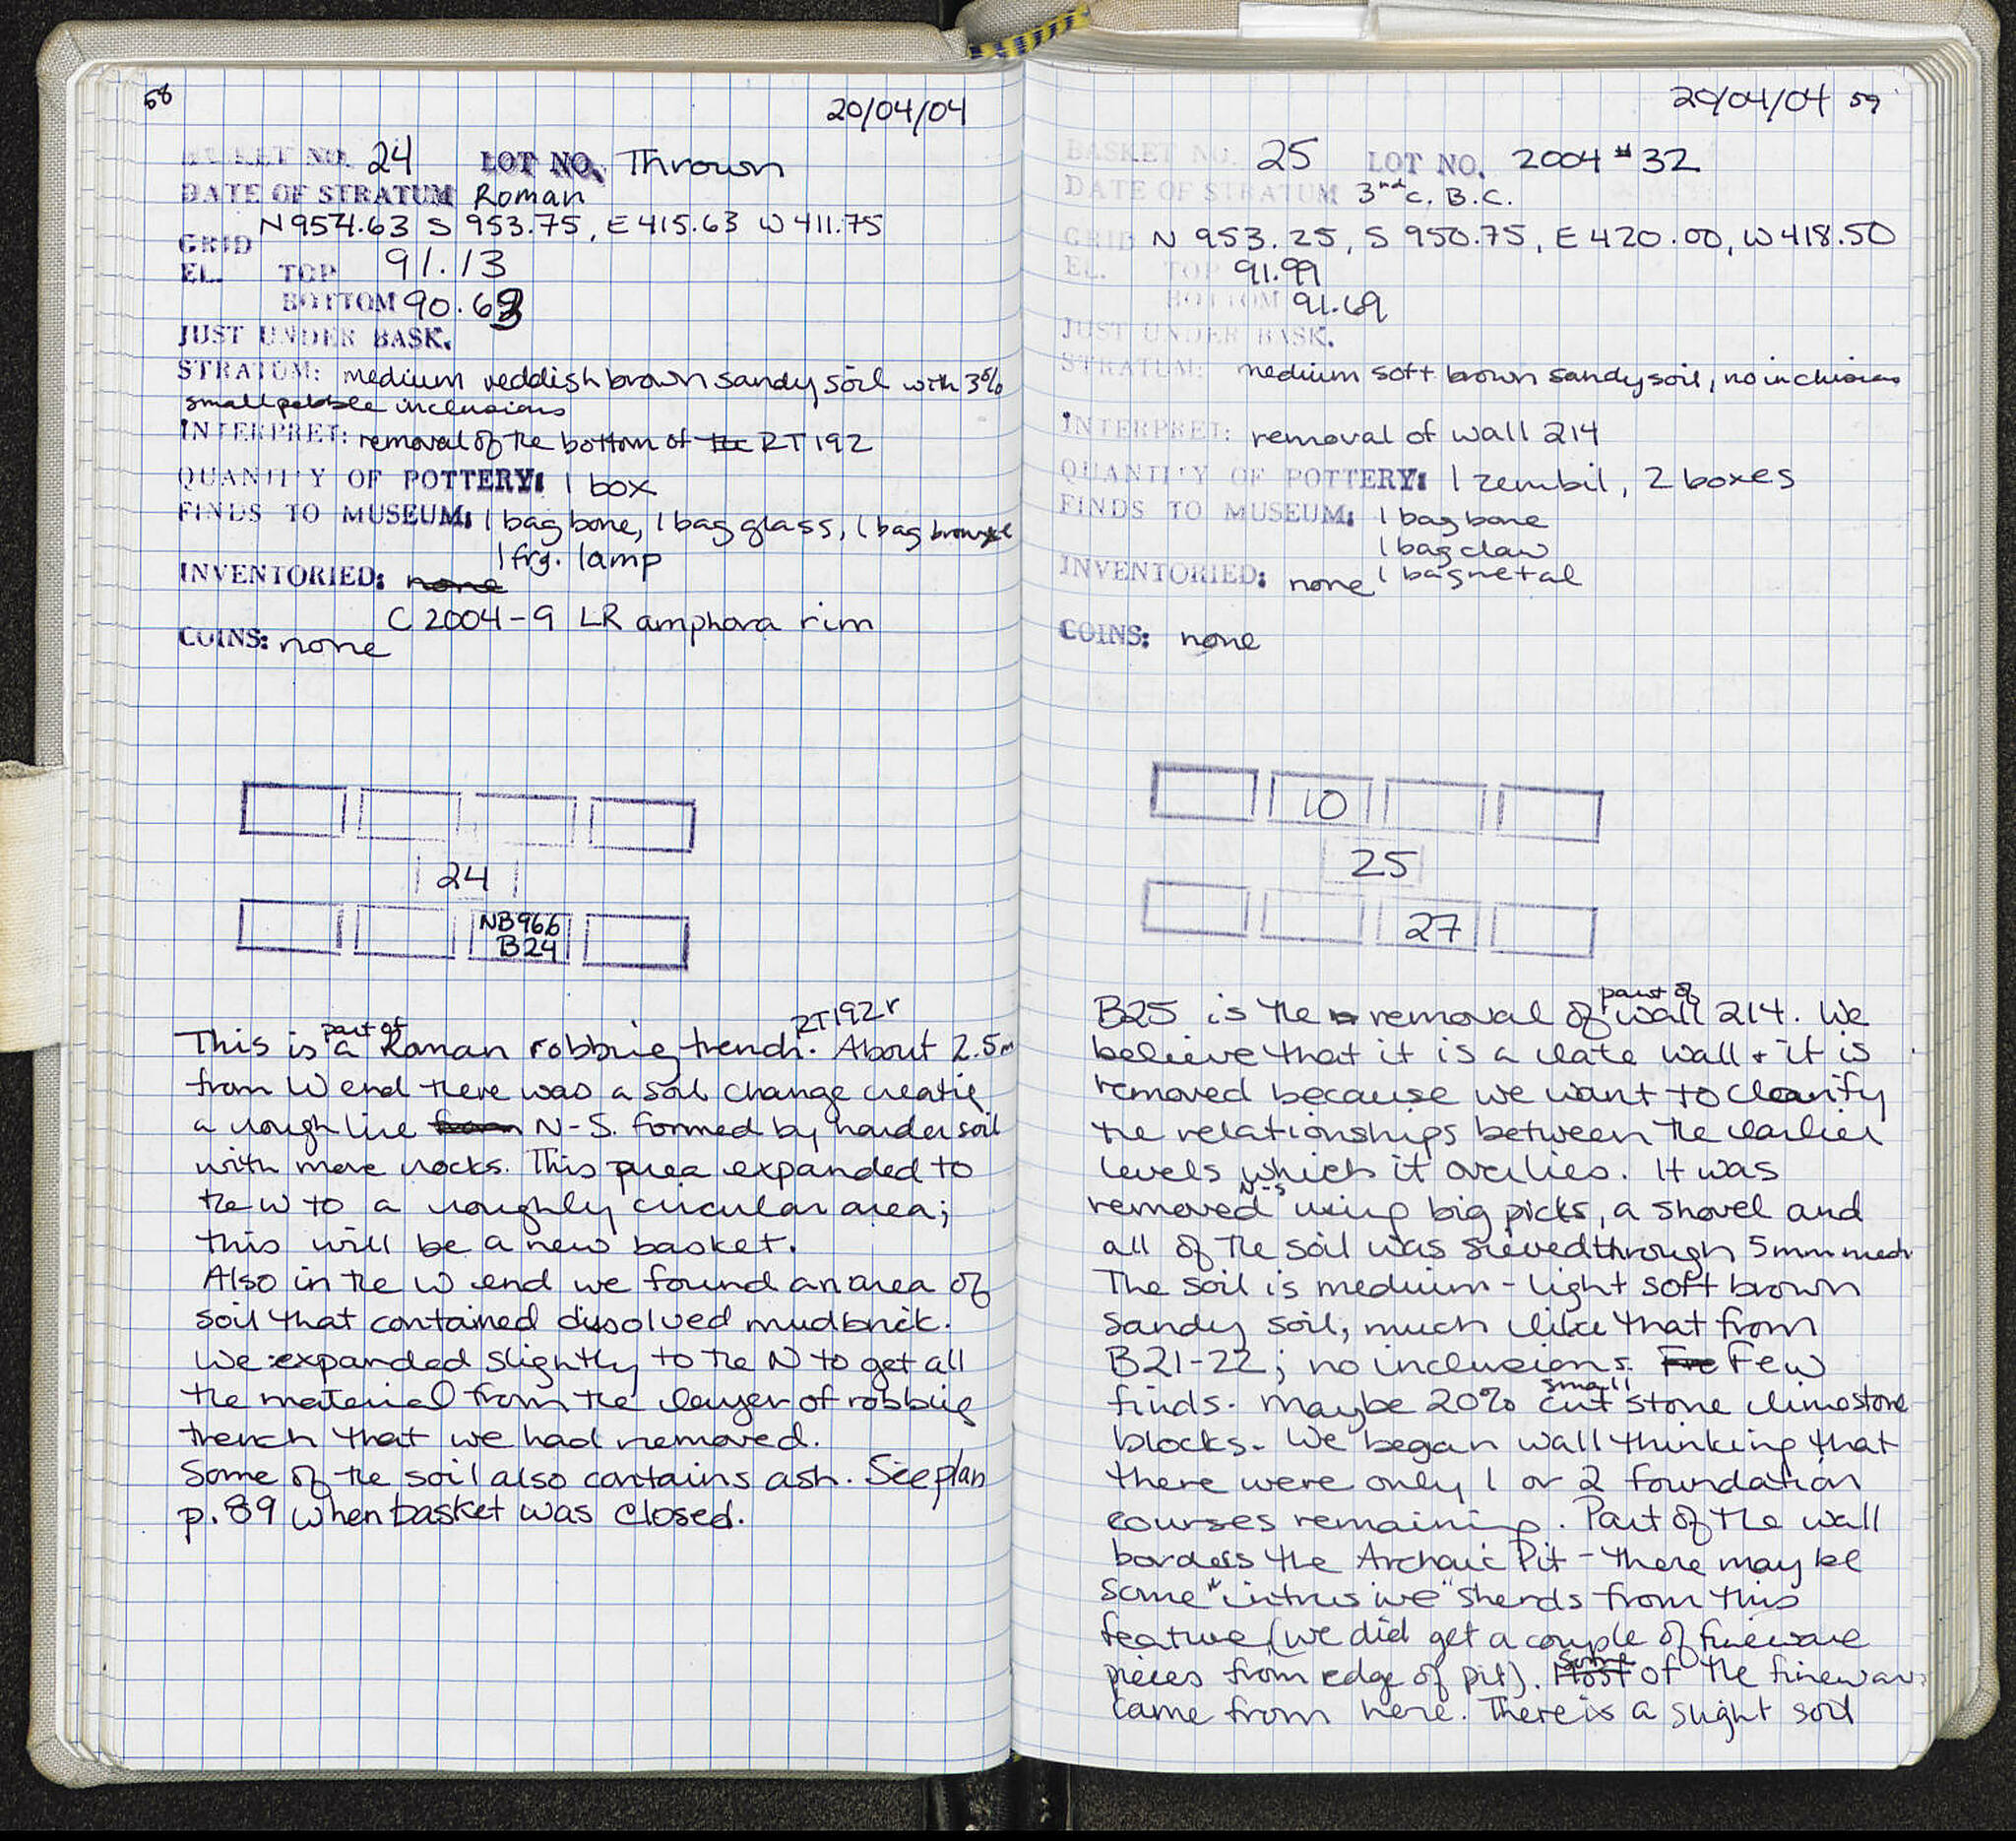 58
20/04/04
BASKET NO. 24 LOT NO. Thrown
DATE OF STRATUM Roman
N 954.63 S 953.75, E 415.63 W 411.75
GRID
EL. TOP 91.13
BOTTOM 90.63
JUST UNDER BASK.
STRATUM: medium reddish brown sandy soil with 3%
small pebble inclusions
INTERPRET: removal of the bottom of the RT 192
QUANTITY OF POTTERY: 1 box
FINDS TO MUSEUM: 1 bag bone, 1 bag glass, 1 bag bronze
1 frg. lamp
INVENTORIED: none
C 2004-9 LR amphora rim
COINS: none
24
NB966
B24
This is part of a Roman robbing trench RT192r. About 2.5m
from W end there was a soil change creatig
a rough line from N-S. formed by harder soil
with more rocks. This area expanded to
the W to a roughly circular area;
this will be a new basket.
Also in the W end we found an area of
soil that contained dissolved mudbrick.
We expanded slightly to the N to get all
the material from the layer of robbig
trench that we had removed.
Some of the soil also contains ash. See plan
p. 89 when basket was closed.
20/04/04 59
BASKET NO. 25 LOT NO. 2004 #32
DATE OF STRATUM 3rd c. B.C.
GRID N 953.25, S 950.75, E 420.00, W 418.50
EL. TOP 91.99
BOTTOM 91.69
JUST UNDER BASK.
STRATUM: medium soft brown sandy soil, no inclusions
INTERPRET: removal of wall 214
QUANTITY OF POTTERY: 1 zembil, 2 boxes
FINDS TO MUSEUM: 1 bag bone
1 bag claw
INVENTORIED: none 1 bag metal
COINS: none
10
25
27
B25 is the removal of part of wall 214. We
believe that it is a late wall + it is
removed because we want to clarify
the relationships between the earlier
levels which it overlies. It was
removed N-S using big picks, a shovel and
all of the soil was sieved through 5mm mesh
The soil is medium - light soft brown
sandy soil, much like that from
B21-22; no inclusions. Few
finds. maybe 20% small cut stone limestone
blocks. We began wall thinking that
there were only 1 or 2 foundation
courses remaining. Part of the wall
borders the Archaic Pit - there may be
some "intrusive" sherds from this
feature (we did get a couple of fineware
pieces from edge of pit). Most Some of the fineware
came from here. There is a slight soil